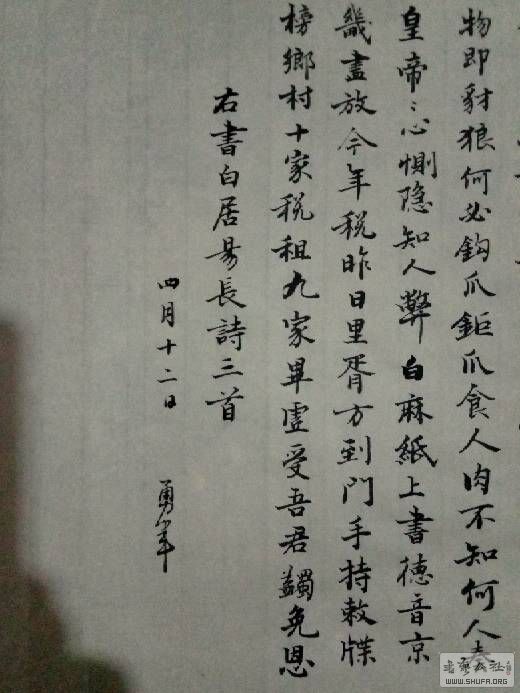 物即豺狼何必鈎爪鉅爪食人肉不知何人奏
皇帝〻心惻隐知人弊白麻紙上書德音京
畿盡放今年税昨日里胥方到門手持敕牒
榜鄉村十家税租九家畢虛受吾君蠲免恩
右書白居易長詩三首
四月十二日
書法公社
WWW.SHUFA.ORG